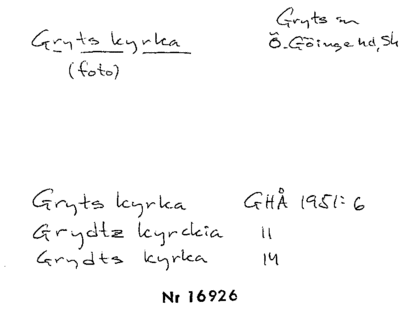 Gryts kyrka
(foto)
Gryts sn
Ö. Göinge hd, Sk
Gryts kyrka GHÅ 1951: 6
Grydtz kyrckia 11
Grydts kyrka 14
Nr 16926